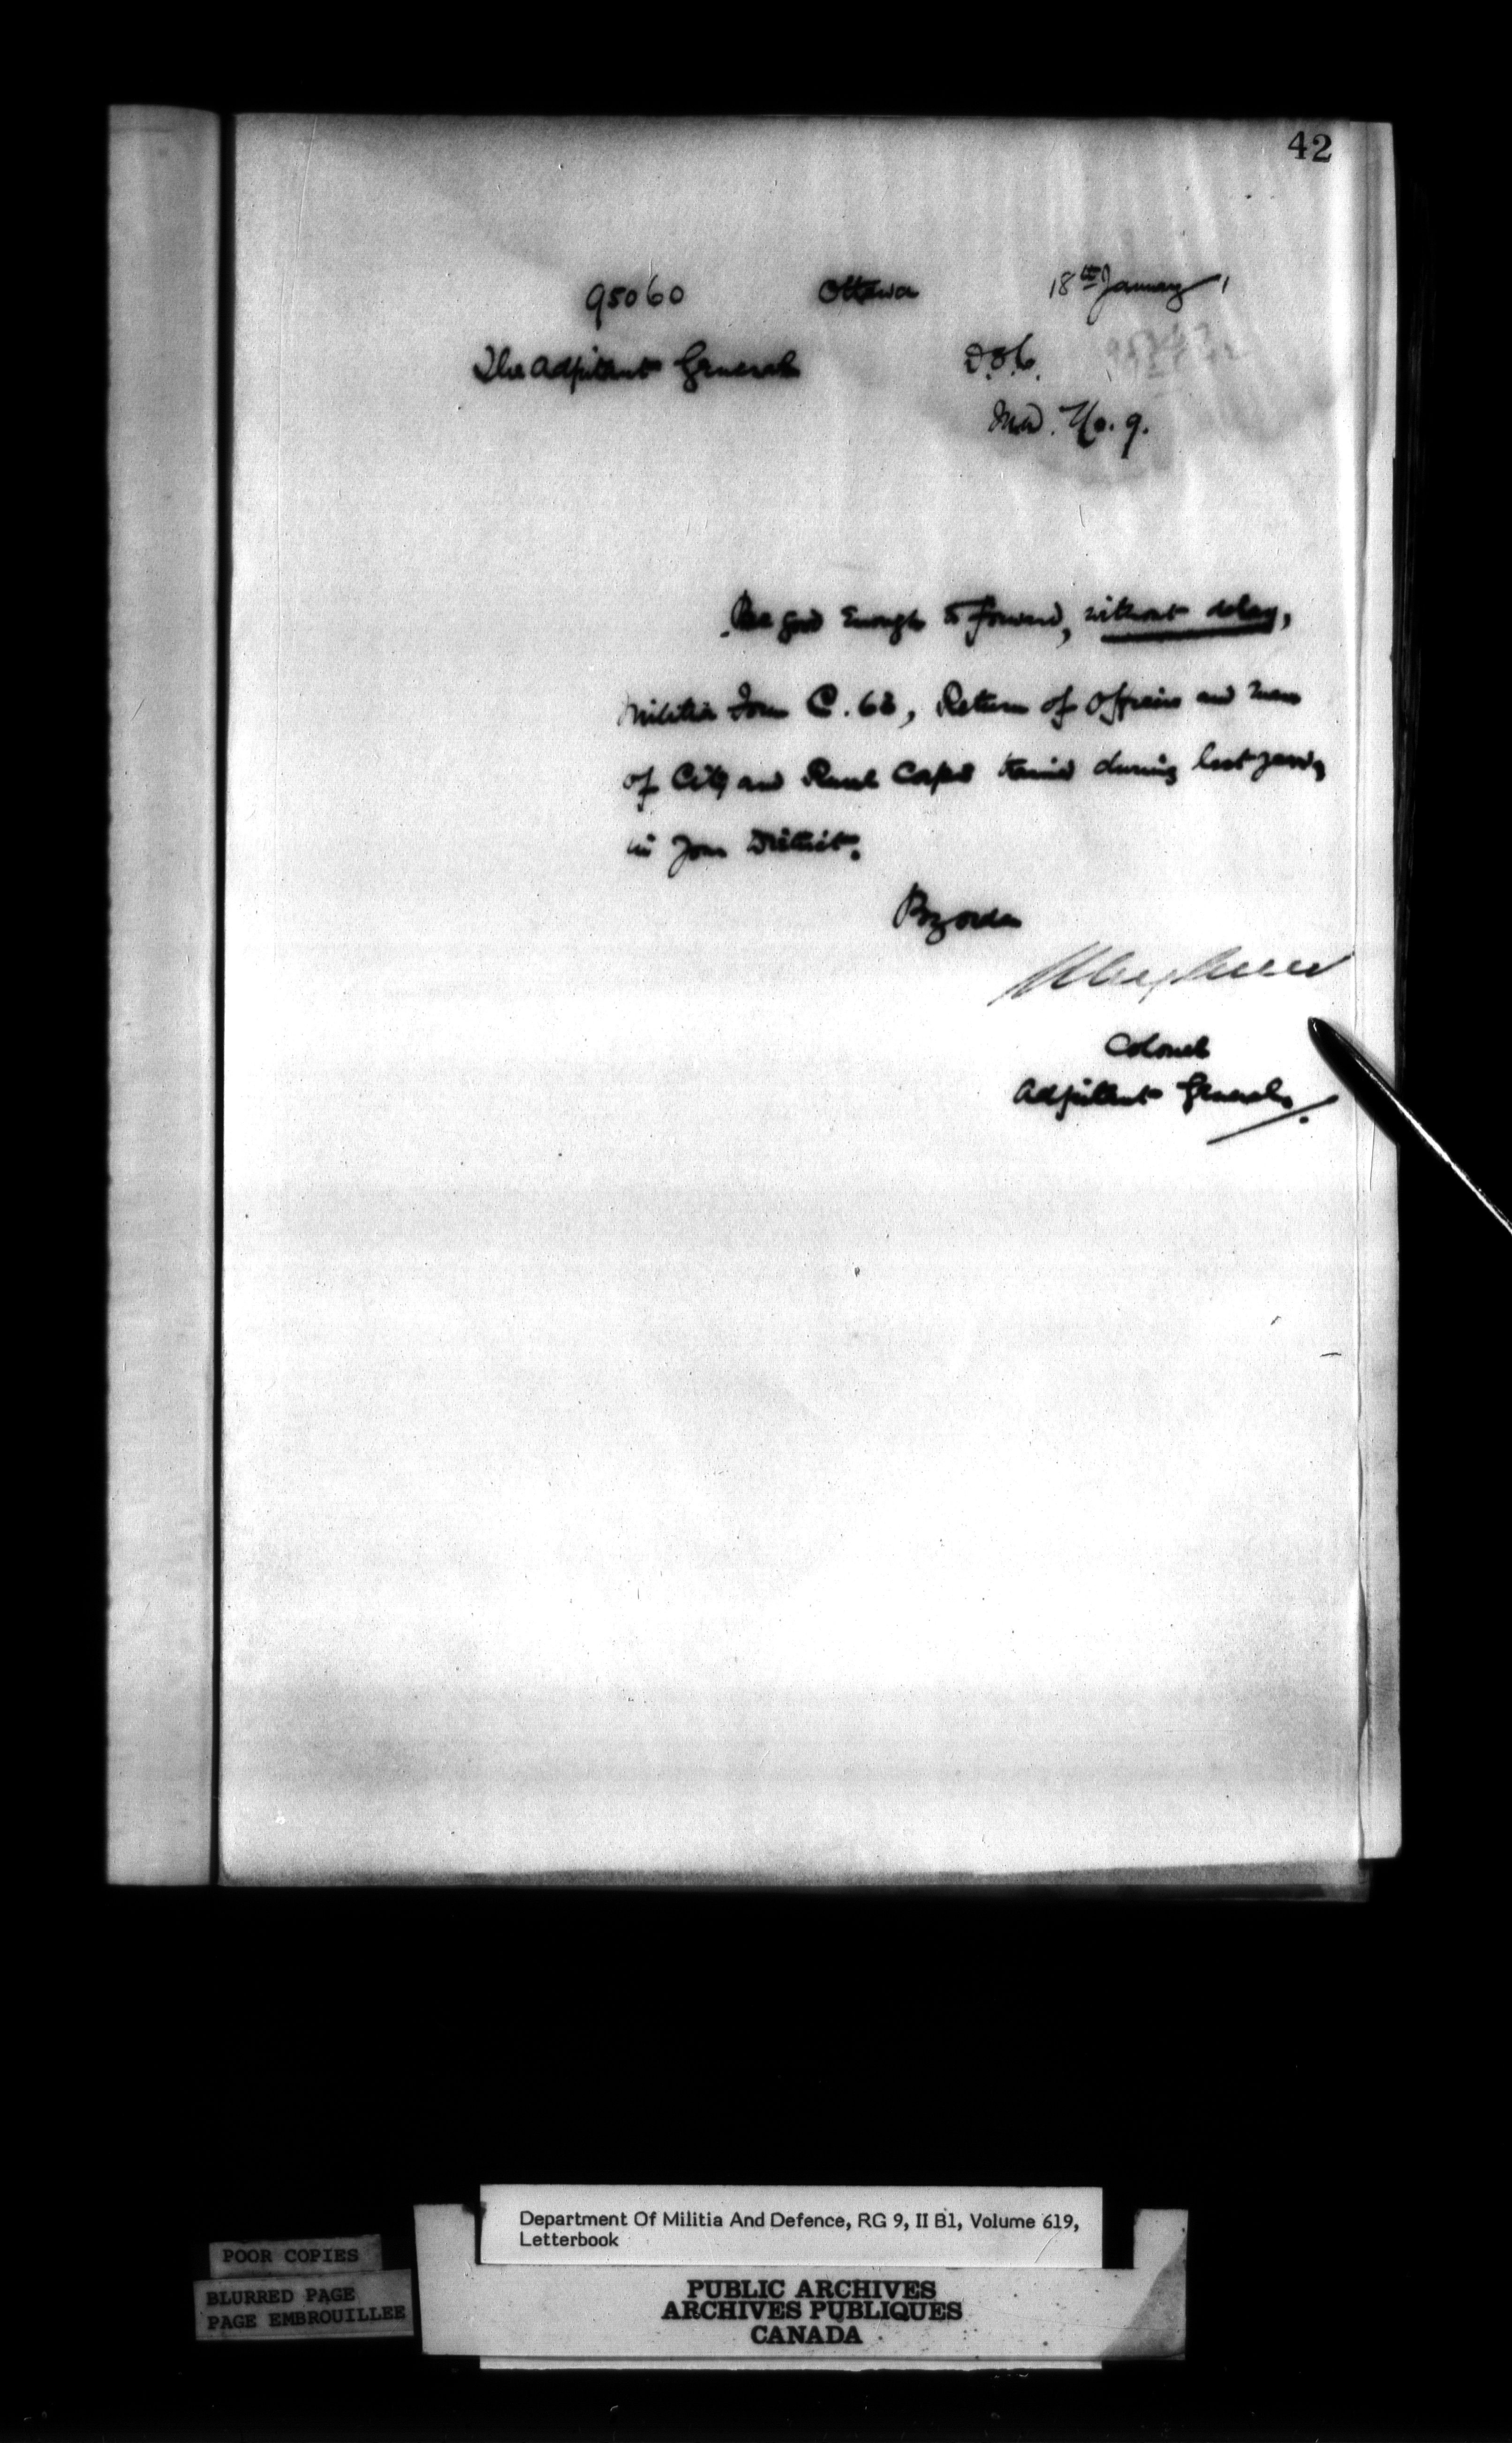 42
95060 Ottawa 18th January 1
The Adjutant General D.O.C.
M.D. No. 9.
Be good enough to forward, without delay,
Militia Form C. 68, Return of Officers and Men
of City and Rural Corps trained during last year,
in your District.
By order
Colonel
Adjutant General.
Department Of Militia And Defence, RG 9, II B1, Volume 619,
Letterbook
POOR COPIES
BLURRED PAGE
PAGE EMBROUILLEE
PUBLIC ARCHIVES
ARCHIVES PUBLIQUES
CANADA